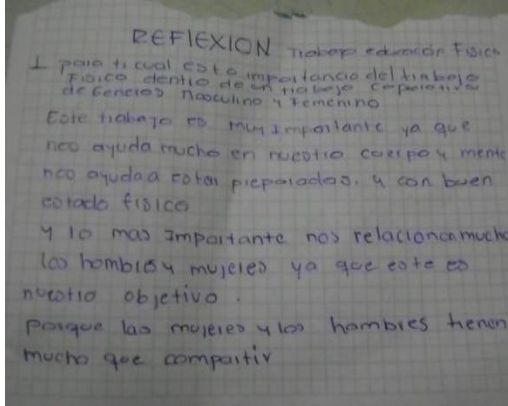 REFLEXION Trabajo educación Fisica
1 para ti cual es la importancia del trabajo
Fisico dentro de un trabajo
de Generos Masculino y Femenino
Este trabajo es muy importante ya que
nos ayuda mucho en nuestro cuerpo y mente
nos ayuda a estar preparados. y con buen
estado fisico
y lo mas importante nos relacionamucho
los hombres y mujeres ya que este es
nuestro objetivo.
porque las mujeres y los hombres tienen
mucho que compartir